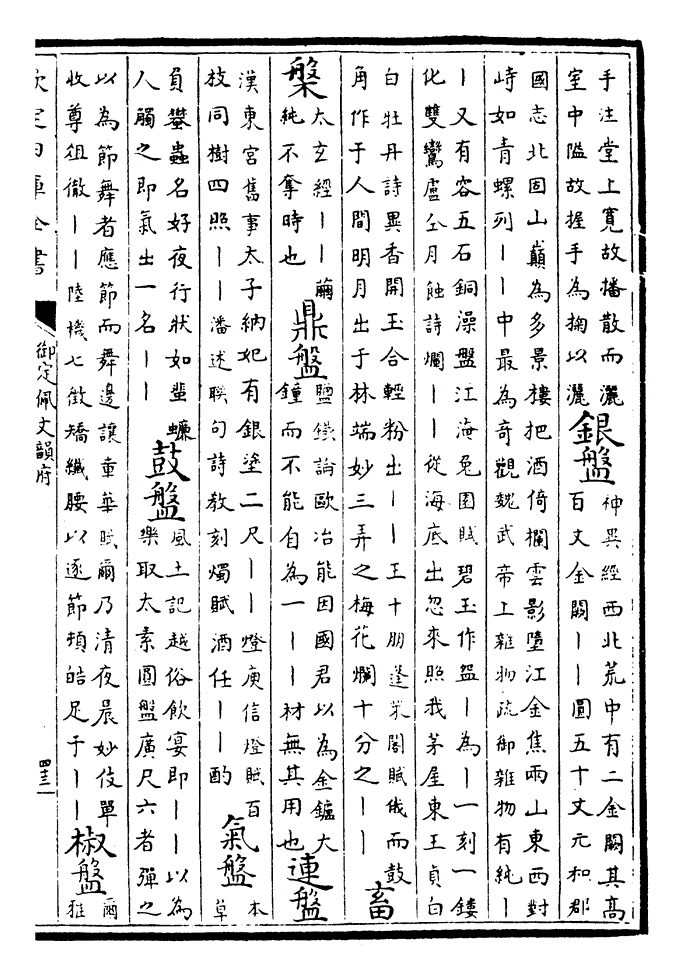 手注堂上寬故播散而灑
室中隘故握手為掬以灑
銀盤
神異經西北荒中有二金闕其高
百丈金闕丨丨圓五十丈元和郡
國志北固山巔為多景樓把酒倚欄雲影墮江金焦兩山東西對
峙如青螺列丨丨中最為奇觀魏武帝上雜物疏御雜物有純丨
丨又有容五石銅澡盤江淹兔園賦碧玉作盌丨為丨一刻一鏤
化雙鸞盧仝月蝕詩爛丨丨從海底出忽來照我茅屋東王貞白
白牡丹詩異香開玉合輕粉出丨丨王十朋蓬萊閣賦俄而鼓
角作于人間明月出于林端妙三弄之梅花爛十分之丨丨
畜
槃
太玄經丨丨繭
純不奪時也
鼎盤
鹽鐵論歐冶能因國君以為金鑪大
鐘而不能自為一丨丨材無其用也
連盤
漢東宮舊事太子納妃有銀塗二尺丨丨燈庾信燈賦百
枝同樹四照丨丨潘述聯句詩教刻燭賦酒任丨丨酌
氣盤
本
草
負蠜蟲名好夜行狀如蜚蠊
人觸之即氣出一名丨丨
鼓盤
風土記越俗飲宴即丨丨以為
樂取太素圓盤廣尺六者彈之
以為節舞者應節而舞邊讓章華賦爾乃清夜晨妙伎單
收尊俎徹丨丨陸機七徵矯纖腰以逐節頓皓足于丨丨
椒盤
爾
雅
欽定四庫全書
御定佩文韻府